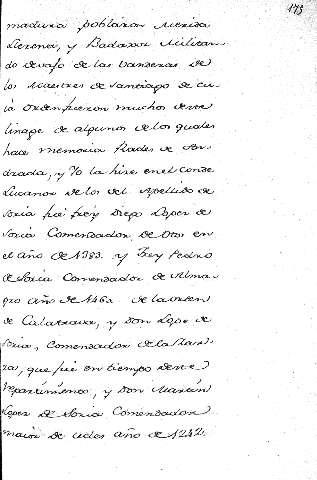 173
madura poblaron Merida
Llerena, y Badaxoz Militan
do devajo de las vanderas de
los Maestres de Santiago de cu
ia orden fueron muchos deste
linage de algunos de los quales
hace memoria Rades de An
drada, y Yo la hise en el conde
Lucanor de los del Apellido de
Soria fue frey Diego Lopez de
Soria Comendador de Otos en
el año de 1383. y frey Pedro
de Soria Comendador de Alma
gro año de 1460 de la orden
de Calatrava, y Don Lope de
Soria, Comendador de la
que fue en tiempo deste
repartimiento, y Don Martin
Lopez de Soria Comendador
maior de Ucles año de 1242